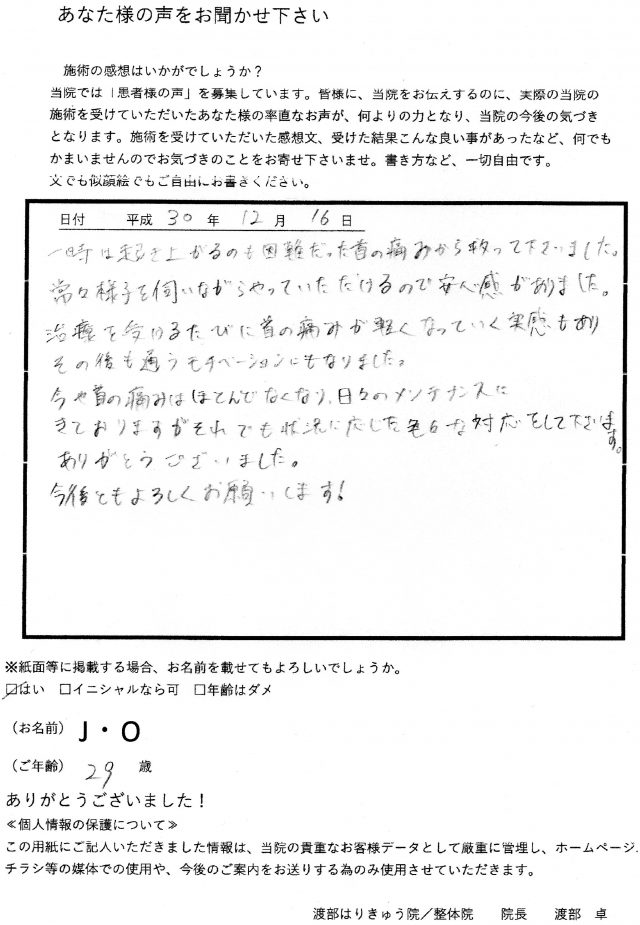 あなた様の声をお聞かせ下さい
施術の感想はいかがでしょうか？
当院では「患者様の声」を募集しています。皆様に、当院をお伝えするのに、実際の当院の
施術を受けていただいたあなた様の率直なお声が、何よりの力となり、当院の今後の気づき
となります。施術を受けていただいた感想文、受けた結果こんな良い事があったなど、何でも
かまいませんのでお気づきのことをお寄せ下さいませ。書き方など、一切自由です。
文でも似顔絵でもご自由にお書きください。
日付 平成 30 年 12 月 16 日
一時は起き上がるのも困難だった首の痛みから救って下さいました。
常々様子を伺いながらやっていただけるので安心感がありました。
治療を受けるたびに首の痛みが軽くなっていく実感もあり
その後も通うモチベーションにもなりました。
今や首の痛みはほとんどなくなり、日々のメンテナンスに
きておりますがそれでも状況に応じた色々な対応をして下さいます。
ありがとうございました。
今後ともよろしくお願いします!
※紙面等に掲載する場合、お名前を載せてもよろしいでしょうか。
☑はい □イニシャルなら可 □年齢はダメ
（お名前） J・O
（ご年齢） 29 歳
ありがとうございました！
≪個人情報の保護について≫
この用紙にご記入いただきました情報は、当院の貴重なお客様データとして厳重に管理し、ホームページ.
チラシ等の媒体での使用や、今後のご案内をお送りする為のみ使用させていただきます。
渡部はりきゅう院／整体院 院長 渡部 卓